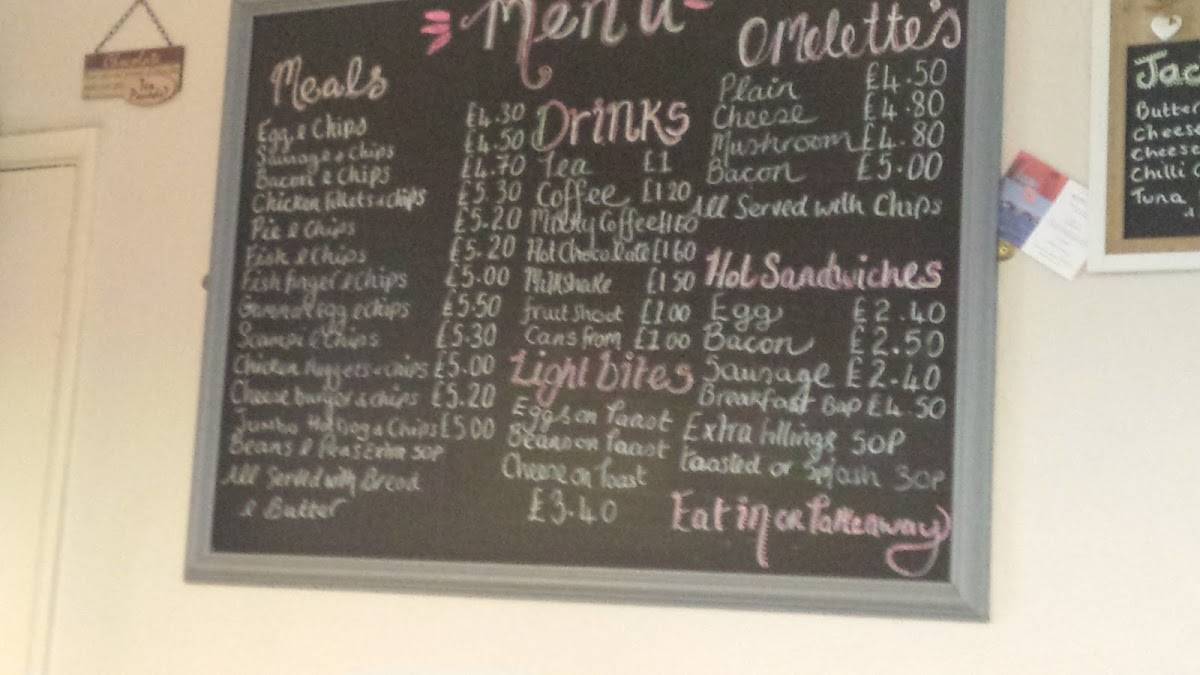 Menu
Meals
Egg & Chips £4.30
Sausage & Chips £4.50
Bacon & Chips £4.70
Chicken fillets & chips £5.30
Pie & Chips £5.20
Fish & Chips £5.20
Fish finger & Chips £5.00
Gammon egg & chips £5.50
Scampi & Chips £5.30
Chicken Nuggets & chips £5.00
Cheese burger & chips £5.20
Jumbo Hot Dog & Chips £5.00
Beans & Peas Extra 50P
All Served with Bread
& Butter
DRINKS
Tea £1
Coffee £1 20
Milky Coffee £1 60
Hot Chocolate £1 60
Milkshake £1 50
fruit shoot £1 00
Cans from £1 00
Light bites
Eggs on Toast
Beans on Toast
Cheese on Toast
£3.40
OMelette's
Plain £4.50
Cheese £4.80
Mushroom £4.80
Bacon £5.00
All Served with Chips
Hot Sandwiches
Egg £2.40
Bacon £2.50
Sausage £2.40
Breakfast Bap £4.50
Extra fillings 50P
Toasted or Splash 30P
Eat in or Takeaway
Jac
Butter
Chees
Cheese
Chilli C
Tuna